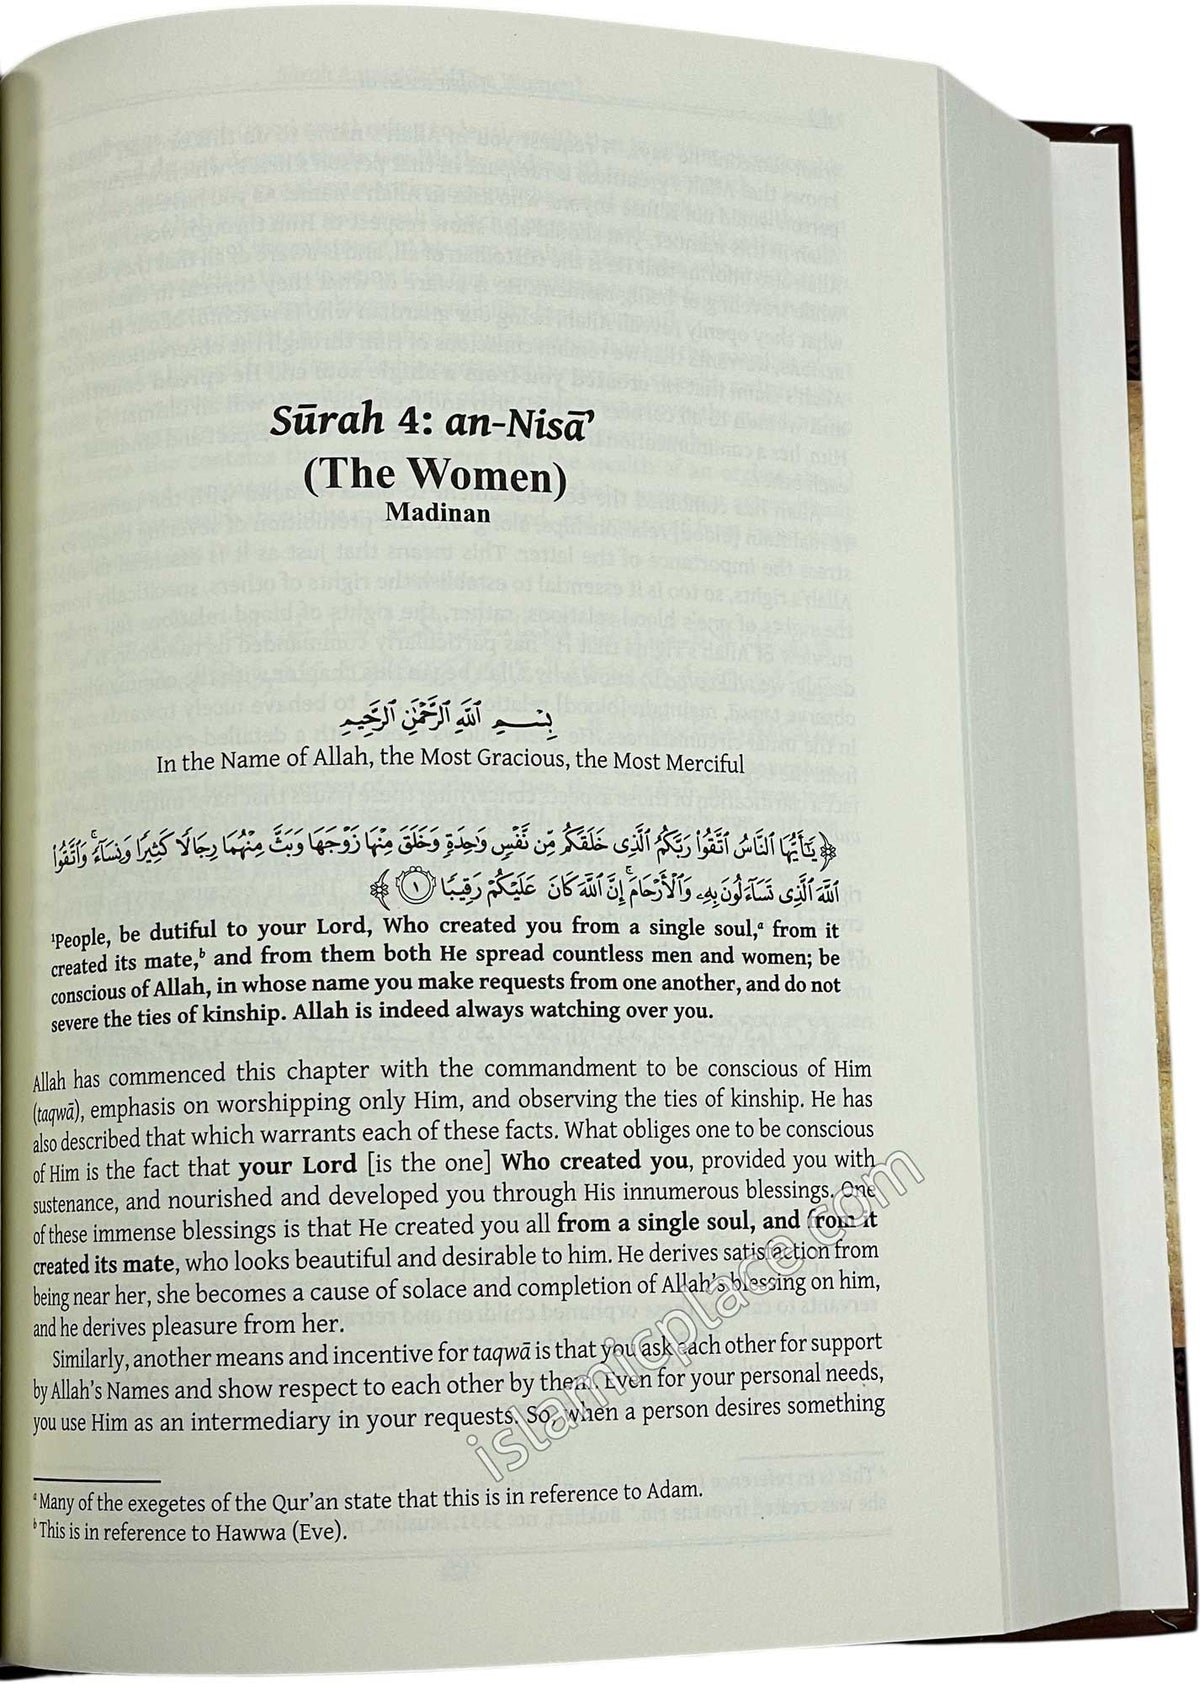 Sūrah 4: an-Nisā’
(The Women)
Madinan
بِسْمِ ٱللَّهِ ٱلرَّحْمَٰنِ ٱلرَّحِيمِ
In the Name of Allah, the Most Gracious, the Most Merciful
﴿يَٰٓأَيُّهَا ٱلنَّاسُ ٱتَّقُوا۟ رَبَّكُمُ ٱلَّذِى خَلَقَكُم مِّن نَّفْسٍ وَٰحِدَةٍ وَخَلَقَ مِنْهَا زَوْجَهَا وَبَثَّ مِنْهُمَا رِجَالًا كَثِيرًا وَنِسَآءً ۚ وَٱتَّقُوا۟
ٱللَّهَ ٱلَّذِى تَسَآءَلُونَ بِهِۦ وَٱلْأَرْحَامَ ۚ إِنَّ ٱللَّهَ كَانَ عَلَيْكُمْ رَقِيبًا ١﴾
¹People, be dutiful to your Lord, Who created you from a single soul,ᵃ from it
created its mate,ᵇ and from them both He spread countless men and women; be
conscious of Allah, in whose name you make requests from one another, and do not
severe the ties of kinship. Allah is indeed always watching over you.
Allah has commenced this chapter with the commandment to be conscious of Him
(taqwā), emphasis on worshipping only Him, and observing the ties of kinship. He has
also described that which warrants each of these facts. What obliges one to be conscious
of Him is the fact that your Lord [is the one] Who created you, provided you with
sustenance, and nourished and developed you through His innumerous blessings. One
of these immense blessings is that He created you all from a single soul, and from it
created its mate, who looks beautiful and desirable to him. He derives satisfaction from
being near her, she becomes a cause of solace and completion of Allah’s blessing on him,
and he derives pleasure from her.
Similarly, another means and incentive for taqwā is that you ask each other for support
by Allah’s Names and show respect to each other by them. Even for your personal needs,
you use Him as an intermediary in your requests. So, when a person desires something
ᵃ Many of the exegetes of the Qur’an state that this is in reference to Adam.
ᵇ This is in reference to Hawwa (Eve).
islamicplace.com